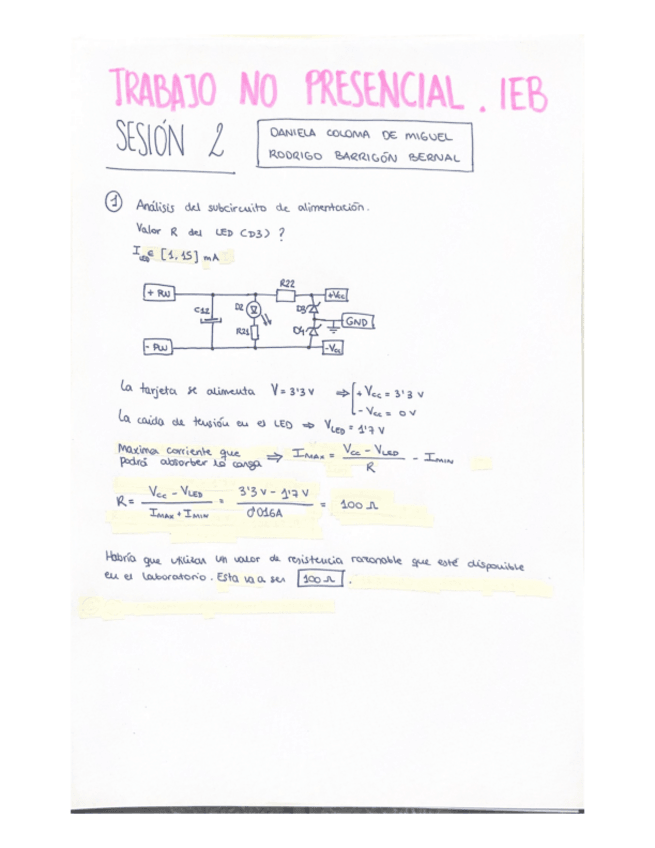 TRABAJO NO PRESENCIAL. IEB
SESIÓN 2
DANIELA COLOMA DE MIGUEL
RODRIGO BARRIGÓN BERNAL
1 Análisis del subcircuito de alimentación.
Valor R del LED (D3) ?
I LED ∈ [1,15] mA
R22
+ PW
+Vcc
C12
D2
D3
GND
R21
D4
- PW
-Vcc
La tarjeta se alimenta V = 3'3 V ⇒ [ + Vcc = 3'3 V
- Vcc = 0V
La caida de tensión en el LED ⇒ VLED = 1'7 V
Maxima corriente que
podrá absorber la carga ⇒ IMAX = Vcc - VLED / R - IMIN
R = Vcc - VLED / IMAX + IMIN = 3'3 V - 1'7 V / 0'016A = 100 Ω
Habría que utilizar un valor de resistencia razonable que esté disponible
en el laboratorio. Esta va a ser 100 Ω.